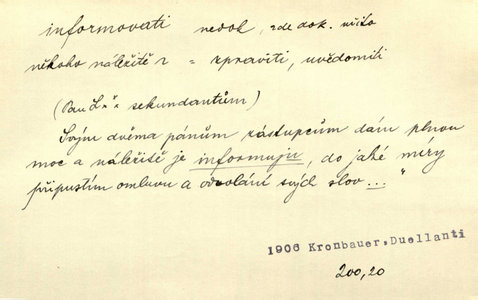 informovati nedok., zde dok. užito
někoho náležitě = zpraviti, uvědomiti
(Pan L** sekundantům)
Svým dvěma pánům zástupcům dám plnou
moc a náležitě je informuju, do jaké míry
připustím omluvu a odvolání svých slov..."
1906 Kronbauer, Duellanti
200,20